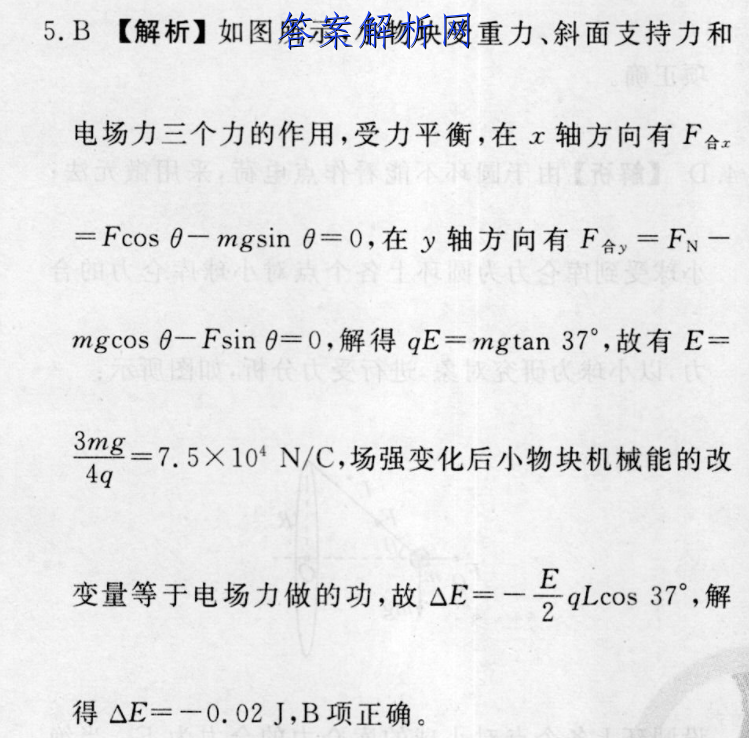 5. B 【解析】如图所示,小物块受重力、斜面支持力和
答案解析网
电场力三个力的作用,受力平衡,在 x 轴方向有 F合x
=Fcos θ-mgsin θ=0,在 y 轴方向有 F合y=FN-
mgcos θ-Fsin θ=0,解得 qE=mgtan 37°,故有 E=
3mg/4q=7.5×10⁴ N/C,场强变化后小物块机械能的改
变量等于电场力做的功,故 △E=-E/2 qLcos 37°,解
得 △E=-0.02 J,B项正确。